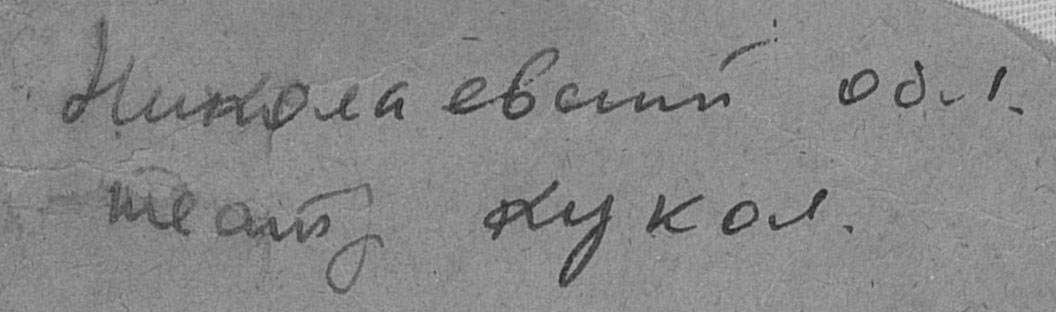 Николаевский обл.
театр кукол.